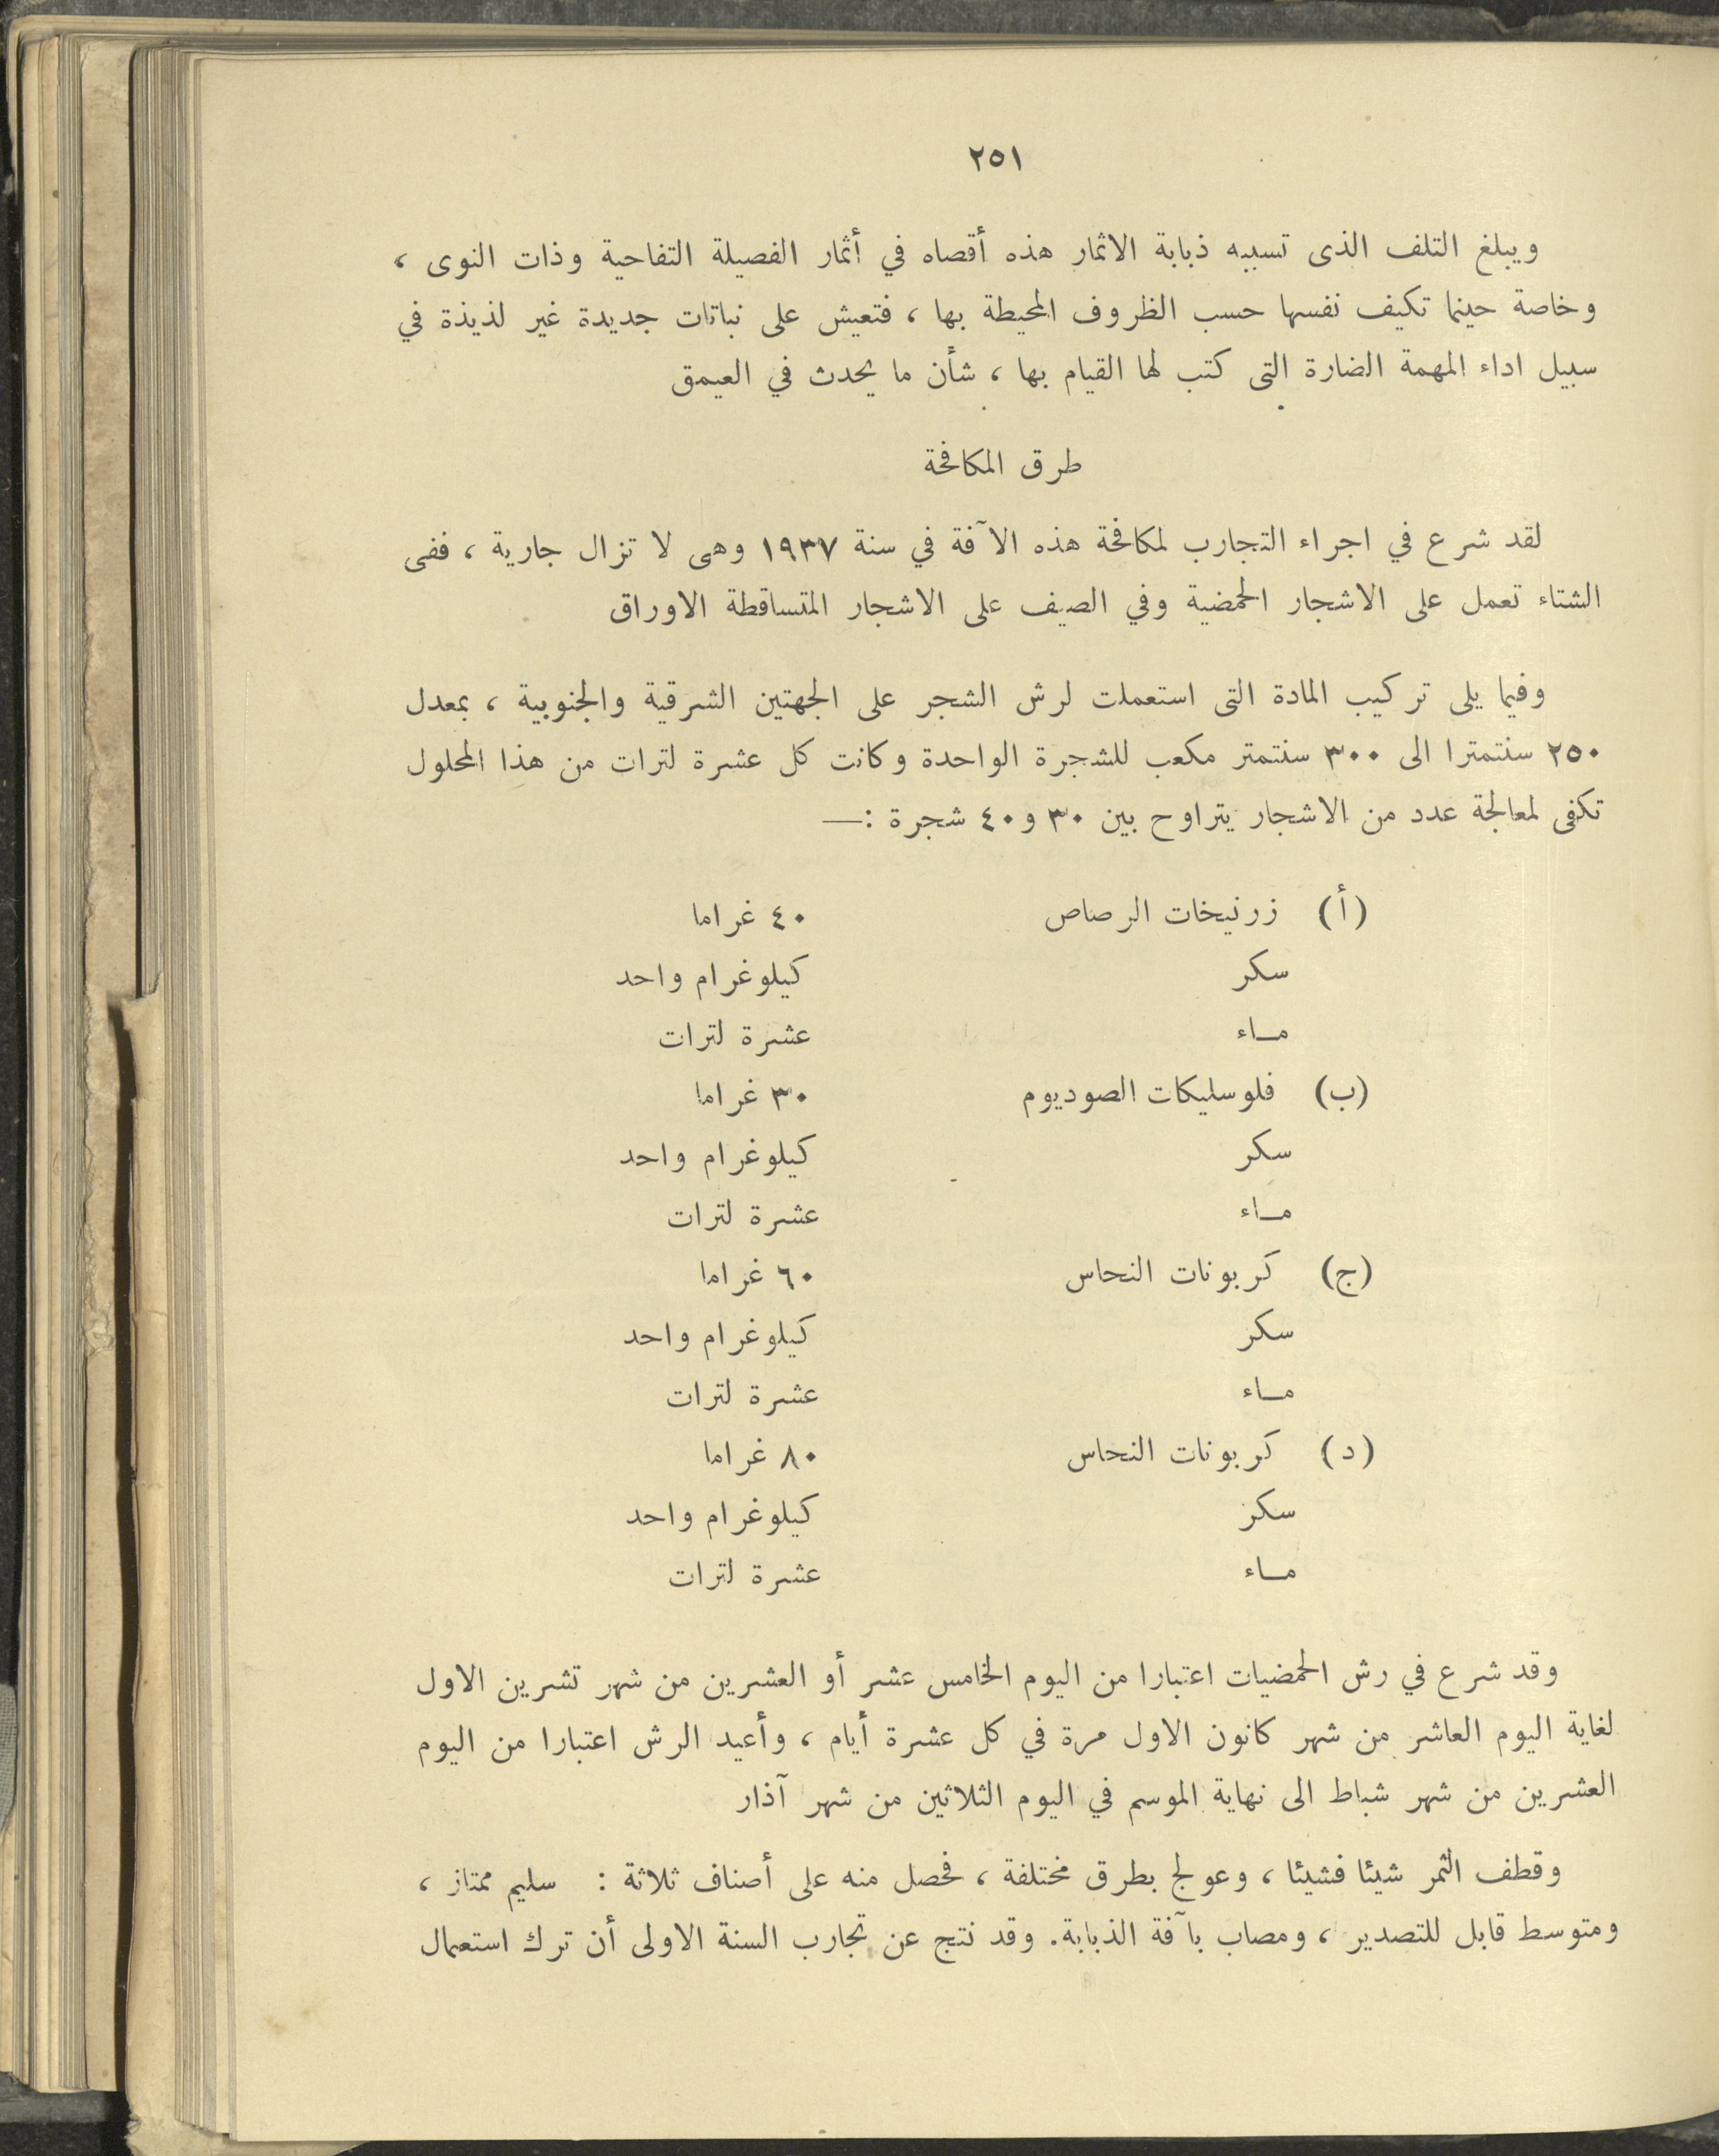 ٢٥١
ويبلغ التلف الذى تسببه ذبابة الاثمار هذه أقصاه في أثمار الفصيلة التفاحية وذات النوى ،
وخاصة حينما تكيف نفسها حسب الظروف المحيطة بها ، فتعيش على نباتات جديدة غير لذيذة في
سبيل اداء المهمة الضارة التى كتب لها القيام بها ، شأن ما يحدث في العيمق
طرق المكافحة
لقد شرع في اجراء التجارب لمكافحة هذه الآفة في سنة ١٩٣٧ وهى لا تزال جارية ، ففى
الشتاء تعمل على الاشجار الحمضية وفي الصيف على الاشجار المتساقطة الاوراق
وفيما يلى تركيب المادة التى استعملت لرش الشجر على الجهتين الشرقية والجنوبية ، بمعدل
٢٥٠ سنتمترا الى ٣٠٠ سنتمتر مكعب للشجرة الواحدة وكانت كل عشرة لترات من هذا المحلول
تكفى لمعالجة عدد من الاشجار يتراوح بين ٣٠ و٤٠ شجرة :—
(أ) زرنيخات الرصاص ٤٠ غراما
سكر كيلوغرام واحد
مــاء عشرة لترات
(ب) فلوسليكات الصوديوم ٣٠ غراما
سكر كيلوغرام واحد
مــاء عشرة لترات
(ج) كربونات النحاس ٦٠ غراما
سكر كيلوغرام واحد
مــاء عشرة لترات
(د) كربونات النحاس ٨٠ غراما
سكر كيلوغرام واحد
مــاء عشرة لترات
وقد شرع في رش الحمضيات اعتبارا من اليوم الخامس عشر أو العشرين من شهر تشرين الاول
لغاية اليوم العاشر من شهر كانون الاول مرة في كل عشرة أيام ، وأعيد الرش اعتبارا من اليوم
العشرين من شهر شباط الى نهاية الموسم في اليوم الثلاثين من شهر آذار
وقطف الثمر شيئا فشيئا ، وعولج بطرق مختلفة ، فحصل منه على أصناف ثلاثة : سليم ممتاز ،
ومتوسط قابل للتصدير ، ومصاب بآفة الذبابة. وقد نتج عن تجارب السنة الاولى أن ترك استعمال